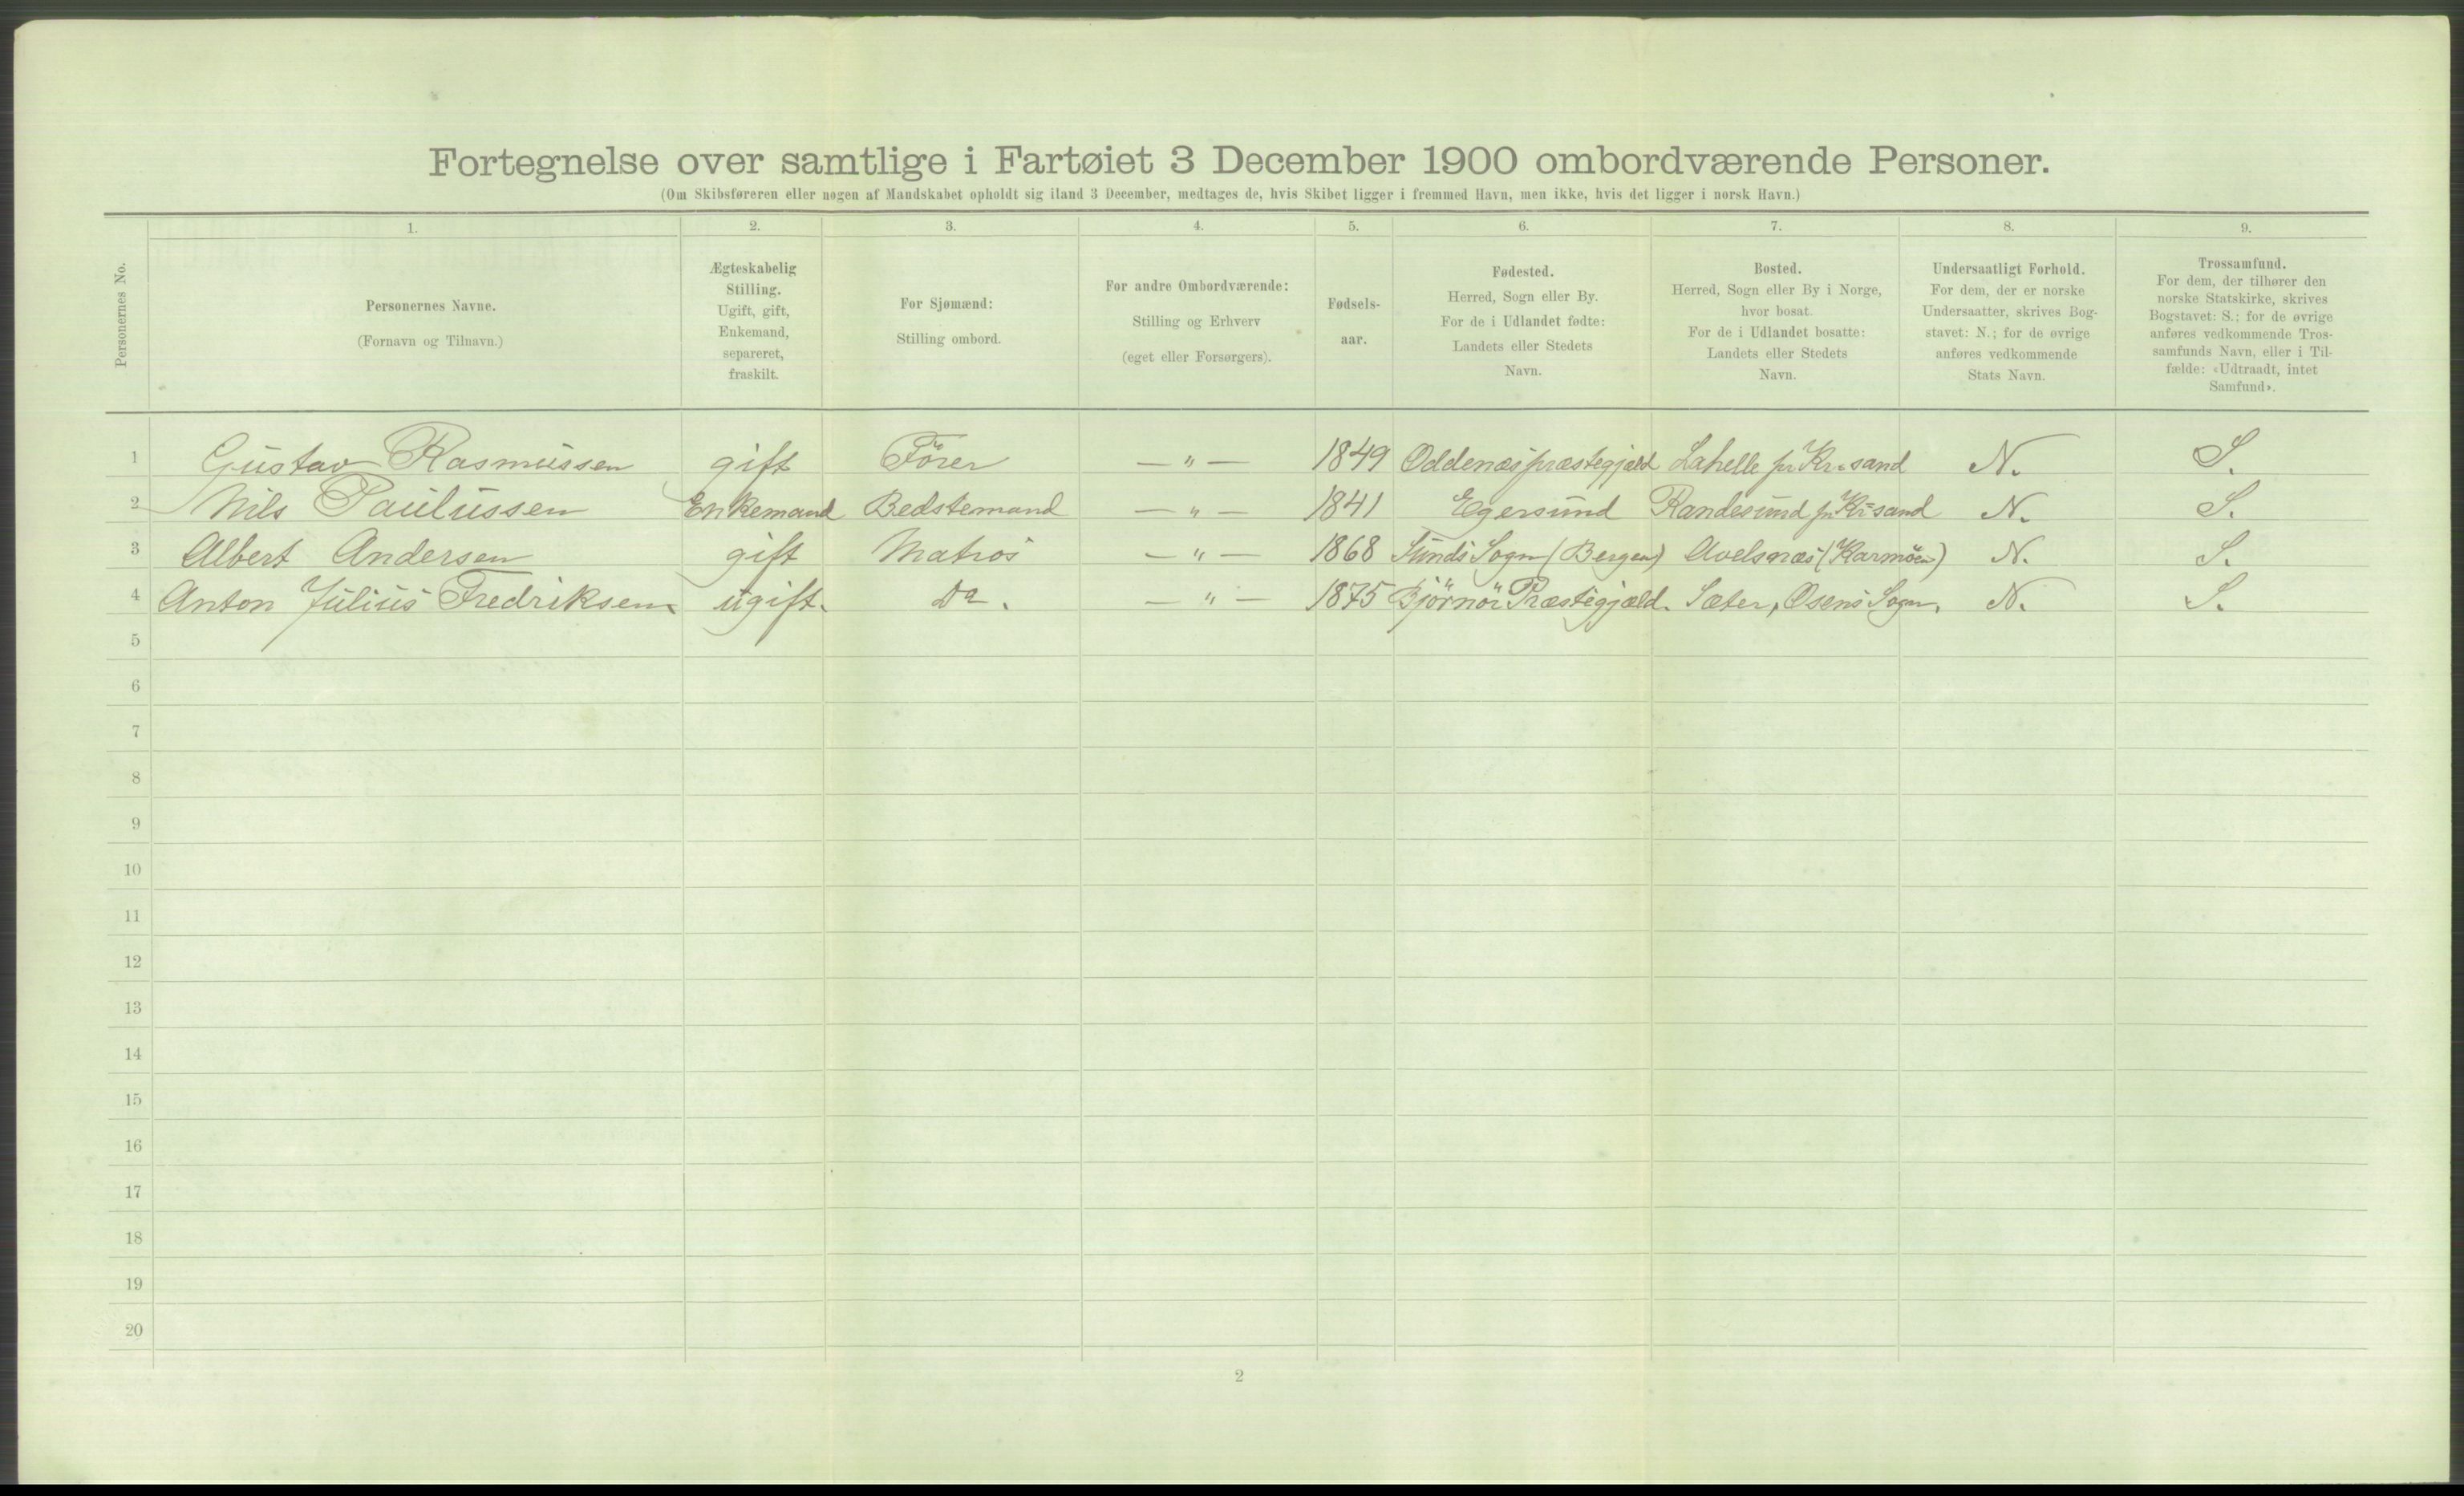 Fortegnelse over samtlige i Fartøiet 3 December 1900 ombordværende Personer.
(Om Skibsføreren eller nogen af Mandskabet opholdt sig iland 3 December, medtages de, hvis Skibet ligger i fremmed Havn, men ikke, hvis det ligger i norsk Havn.)
Personernes No.
1.
Personernes Navne.
(Fornavn og Tilnavn.)
2.
Ægteskabelig
Stilling.
Ugift, gift,
Enkemand,
separeret,
fraskilt.
3.
For Sjømænd:
Stilling ombord.
4.
For andre Ombordværende:
Stilling og Erhverv
(eget eller Forsørgers).
5.
Fødsels-
aar.
6.
Fødested.
Herred, Sogn eller By.
For de i Udlandet fødte:
Landets eller Stedets
Navn.
7.
Bosted.
Herred, Sogn eller By i Norge,
hvor bosat.
For de i Udlandet bosatte:
Landets eller Stedets
Navn.
8.
Undersaatligt Forhold.
For dem, der er norske
Undersaatter, skrives Bog-
stavet: N.; for de øvrige
anføres vedkommende
Stats Navn.
9.
Trossamfund.
For dem, der tilhører den
norske Statskirke, skrives
Bogstavet: S.; for de øvrige
anføres vedkommende Tros-
samfunds Navn, eller i Til-
fælde: «Udtraadt, intet
Samfund».
1 Gustav Rasmussen gift Fører — " — 1849 Oddenæs præstegjæld Lahelle pr Kr.sand N. S.
2 Nils Paulussen Enkemand Bedstemand — " — 1841 Egersund Randesund pr Kr.sand N. S.
3 Albert Andersen gift Matros — " — 1868 Sunds Sogn (Bergen) Avelsnæs (Karmöen) N. S.
4 Anton Julius Fredriksen ugift. Do. — " — 1875 Björnör Præstegjæld. Sæter, Osens Sogn. N. S.
5
6
7
8
9
10
11
12
13
14
15
16
17
18
19
20
2